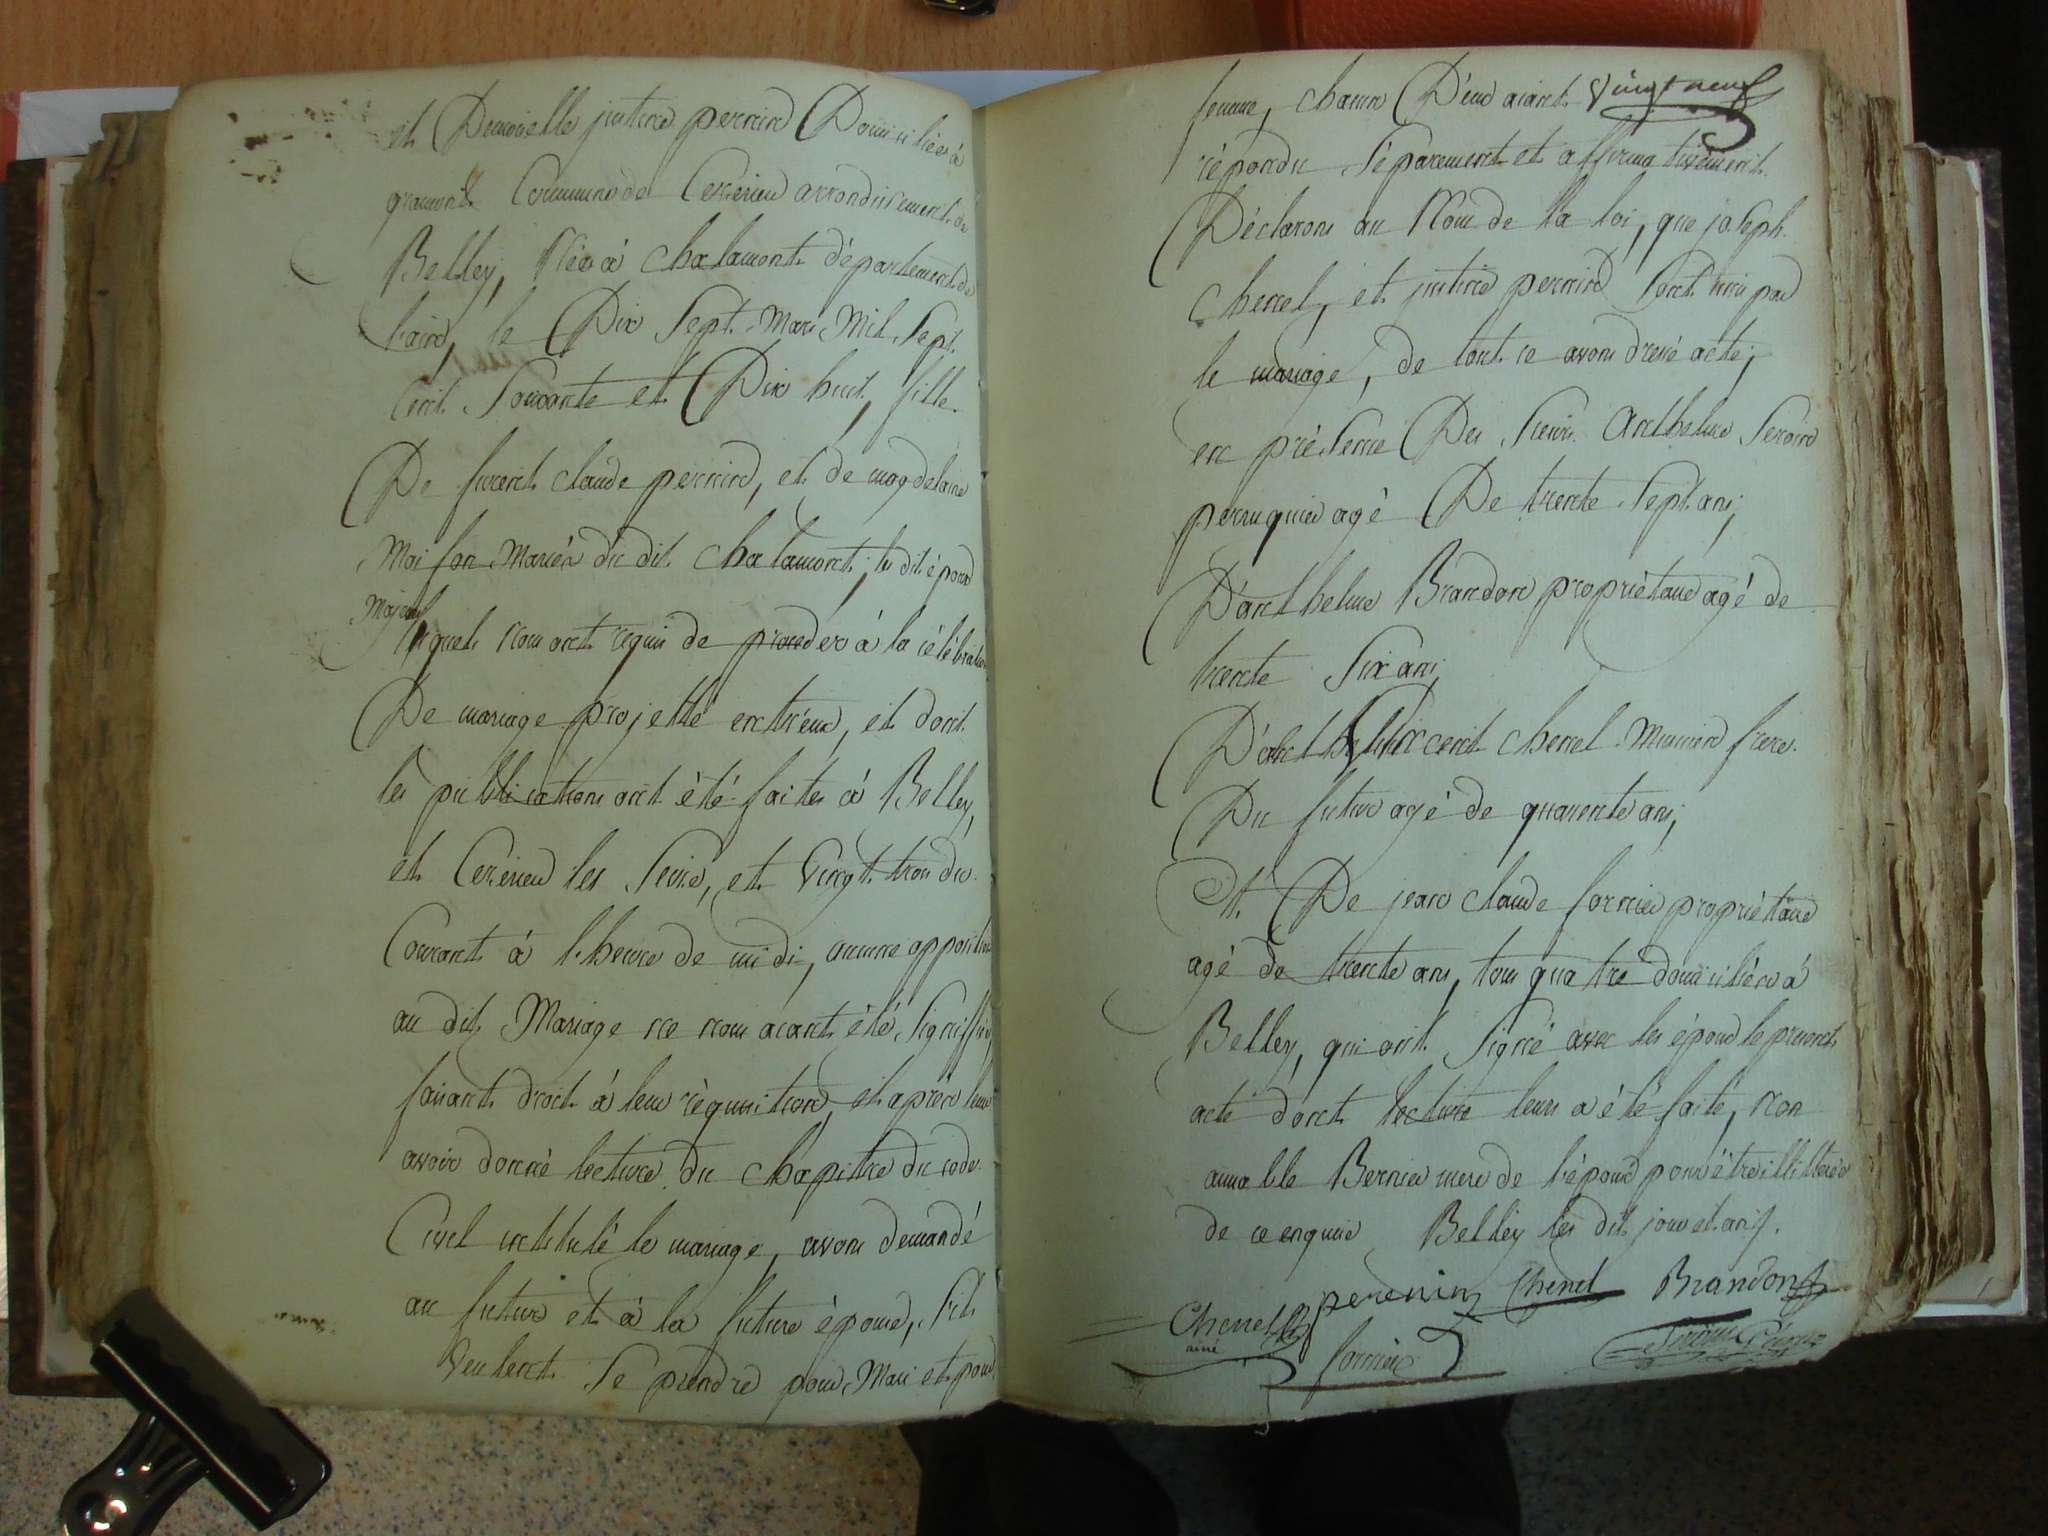 et Demoiselle justine perrin Domiciliée à
gramont Commune de Ceyzerieu arrondissement de
Belley, Née à chalamont département de
l'ain, le Dix Sept Mars Mil Sept
Cent Soixante et Dix huit, fille
De furent claude perrin, et de magdelaine
Moisson Mariés du dit chalamont, les dit époux
Majeurs
lesquels nous ont requis de proceder à la célébration
De mariage projetté entr'eux, et dont
les publications ont été faites à Belley,
et Ceyzerieu les Seize, et Vingt trois du
Courant à l'heure de midi, aucune opposition
au dit Mariage ne nous aiant été Signiffiée,
faisant droit à leur réquisition, et après leur
avoir donné lecture du chapitre du code
Civil intitulé le mariage, avons demandé
au futur et à la future épouse, S'ils
Veulent Se prendre pour Mari et pour
femme, chacun D'eux aiant Vingt neuf
répondu Séparement et affirmativement
Déclarons au Nom de la loi, que joseph
Chenel, et justine perrin Sont unis par
le mariage, de tout ce avons dressé acte,
en présence Des Sieurs Anthelme
perruquier agé De trente Sept ans,
D'anthelme Brandon propriétaire agé de
trente Six ans,
Vincent chenel Meunier frere
Du futur agé de quarente ans,
Et De jean claude fornier propriétaire
agé de trente ans, tous quatre domiciliés à
Belley, qui ont Signé avec les époux le présent
acte dont lecture leurs a été faite, non
aimable Bernier mere de l'époux pour être illitterée
de ce enquise Belley les dit jour et an
Chenel perenin Chenel Brandon
ainé fornier